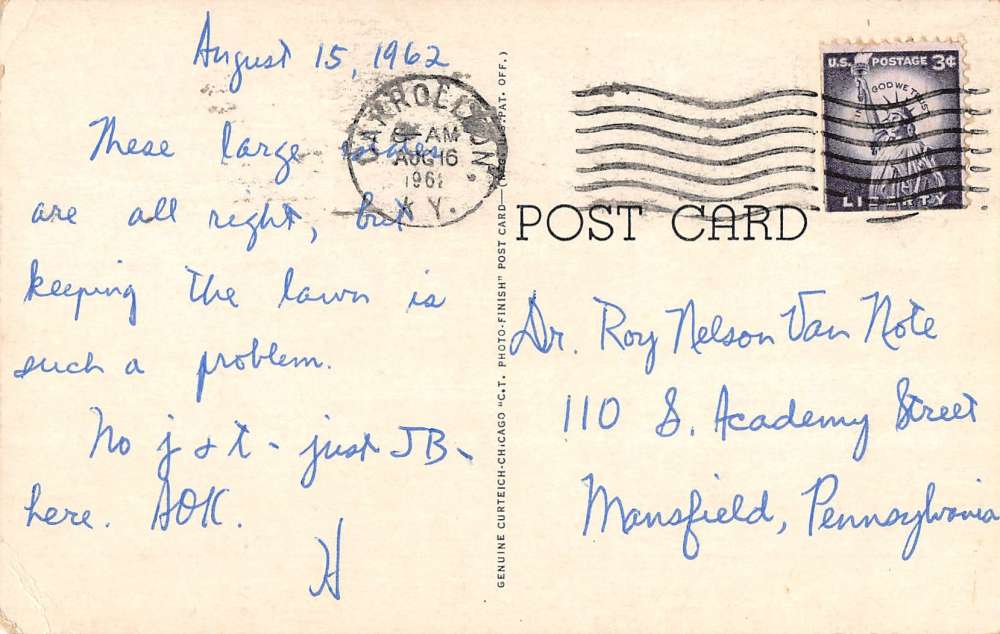 August 15, 1962
These large estates
are all right, but
keeping the lawn is
such a problem.
No j & t - just JB-
here. AOK.
H
CARROLLTON
8 - AM
AUG 16
1962
KY.
GENUINE CURTEICH-CHICAGO "C.T. PHOTO-FINISH" POST CARD (REG. U.S. PAT. OFF.)
U.S. POSTAGE 3¢
IN GOD WE TRUST
LIBERTY
POST CARD
Dr. Roy Nelson Van Note
110 S. Academy Street
Mansfield, Pennsylvania